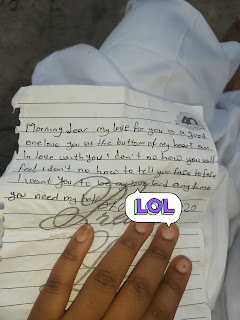 40
Morning dear my love for you is a good
one love you at the bottom of my heart am
in love with you i don't no how you will
feel i don't no how to tell you face to face
I want you to be my
you need my
LOL
20